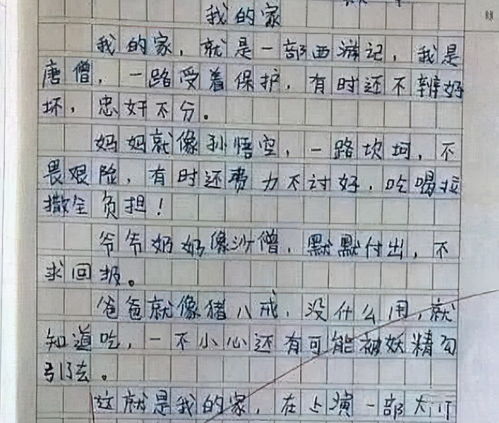 我的家
我的家，就是一部西游记，我是
唐僧，一路受着保护，有时还不辨好
坏，忠奸不分。
妈妈就像孙悟空，一路坎坷，不
畏艰险，有时还费力不讨好，吃喝拉
撒全负担！
爷爷奶奶像沙僧，默默付出，不
求回报。
爸爸就像猪八戒，没什么用，就
知道吃，一不小心还有可能被妖精勾
引去。
这就是我的家，在上演一部大